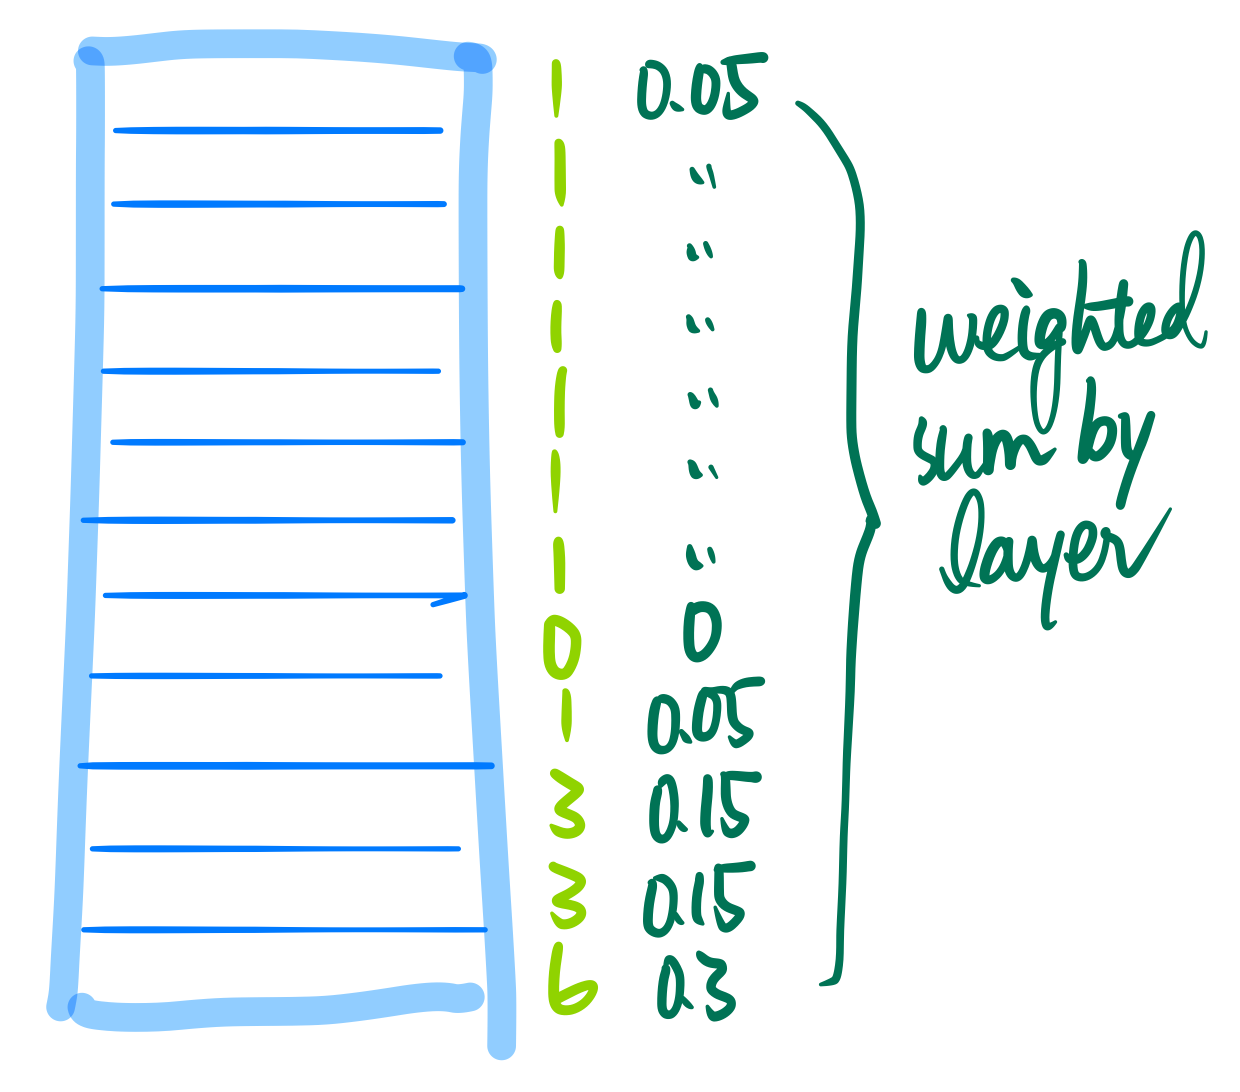 1 0.05
1 "
1 "
1 "
1 "
1 "
1 "
0 0
1 0.05
3 0.15
3 0.15
6 0.3
weighted
sum by
layer